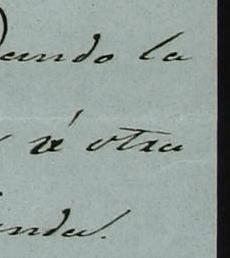 ando la
é otra
nda.